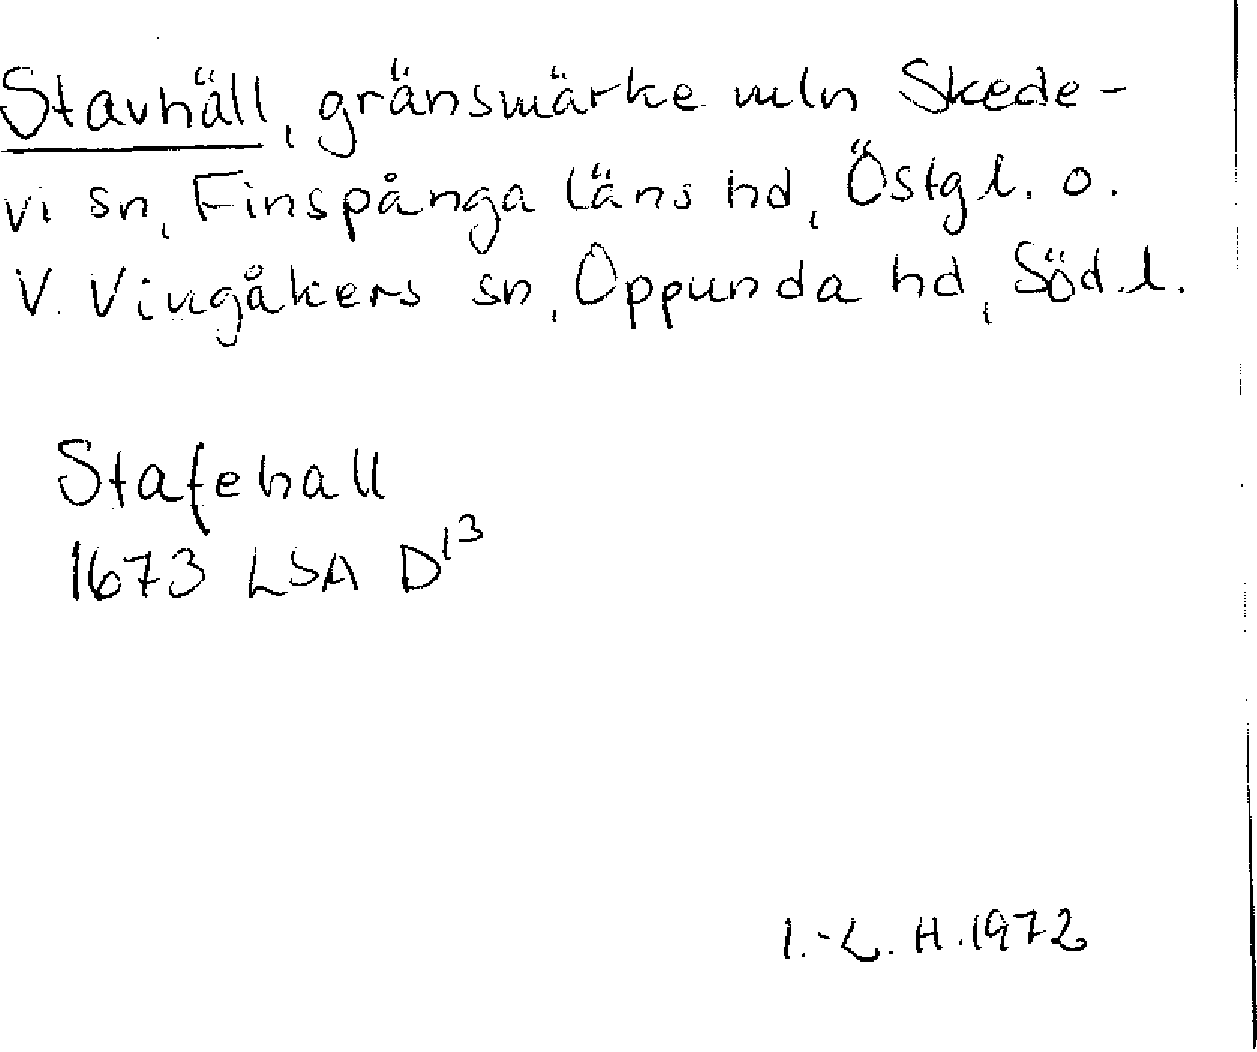 Stavhäll, gränsmärke mln Skede-
vi sn, Finspånga läns hd, Östg.l. o.
V. Vingåkers sn, Oppunda hd, Söd.l.
Stafehall
1673 LSA D13
I.-L. H. 1972